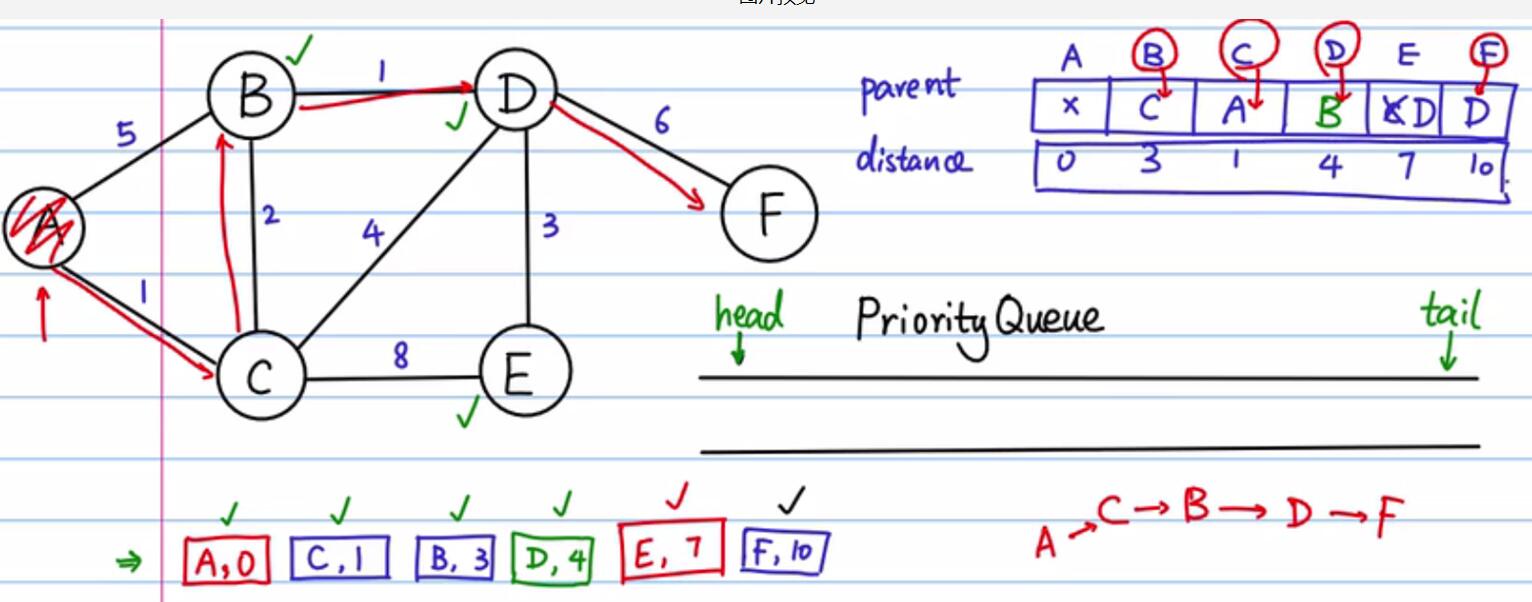 B
1
D
5
6
A
2
4
3
F
1
C
8
E
A B C D E F
parent x C A B D D
distance 0 3 1 4 7 10
head Priority Queue tail
A, 0 C, 1 B, 3 D, 4 E, 7 F, 10
A → C → B → D → F